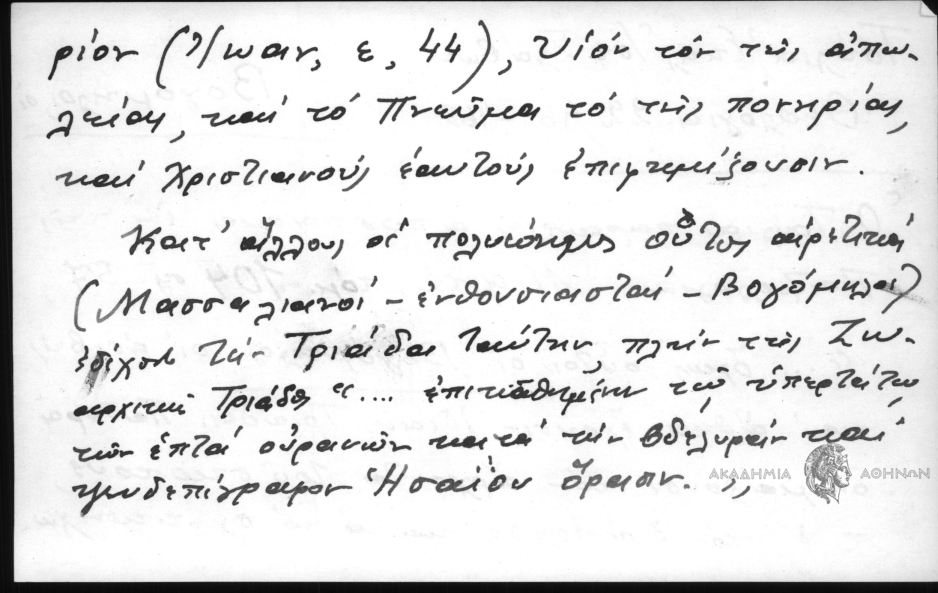 ρίον (Ἰωαν, ε, 44), Υἱόν τόν τῆς ἀπω-
λείας, καί τό Πνεῦμα τό τῆς πονηρίας,
καί Χριστιανούς ἑαυτούς ἐπιφημίζουσιν.
Κατ' ἄλλους οἱ πολυώνυμοι οὗτοι αἱρετικοί
(Μασσαλιανοί - ἐνθουσιασταί - Βογόμηλοι)
ἐδέχοντο τήν Τριάδα ταύτην, πλήν τῆς Ζω-
αρχικῆς Τριάδος "... ἐπικαθημένην τοῦ ὑπερτάτου
τῶν ἑπτά οὐρανῶν κατά τήν βδελυράν καί
ψευδεπίγραφον Ἡσαΐου ὅρασιν.„
ΑΚΑΔΗΜΙΑ ΑΘΗΝΩΝ